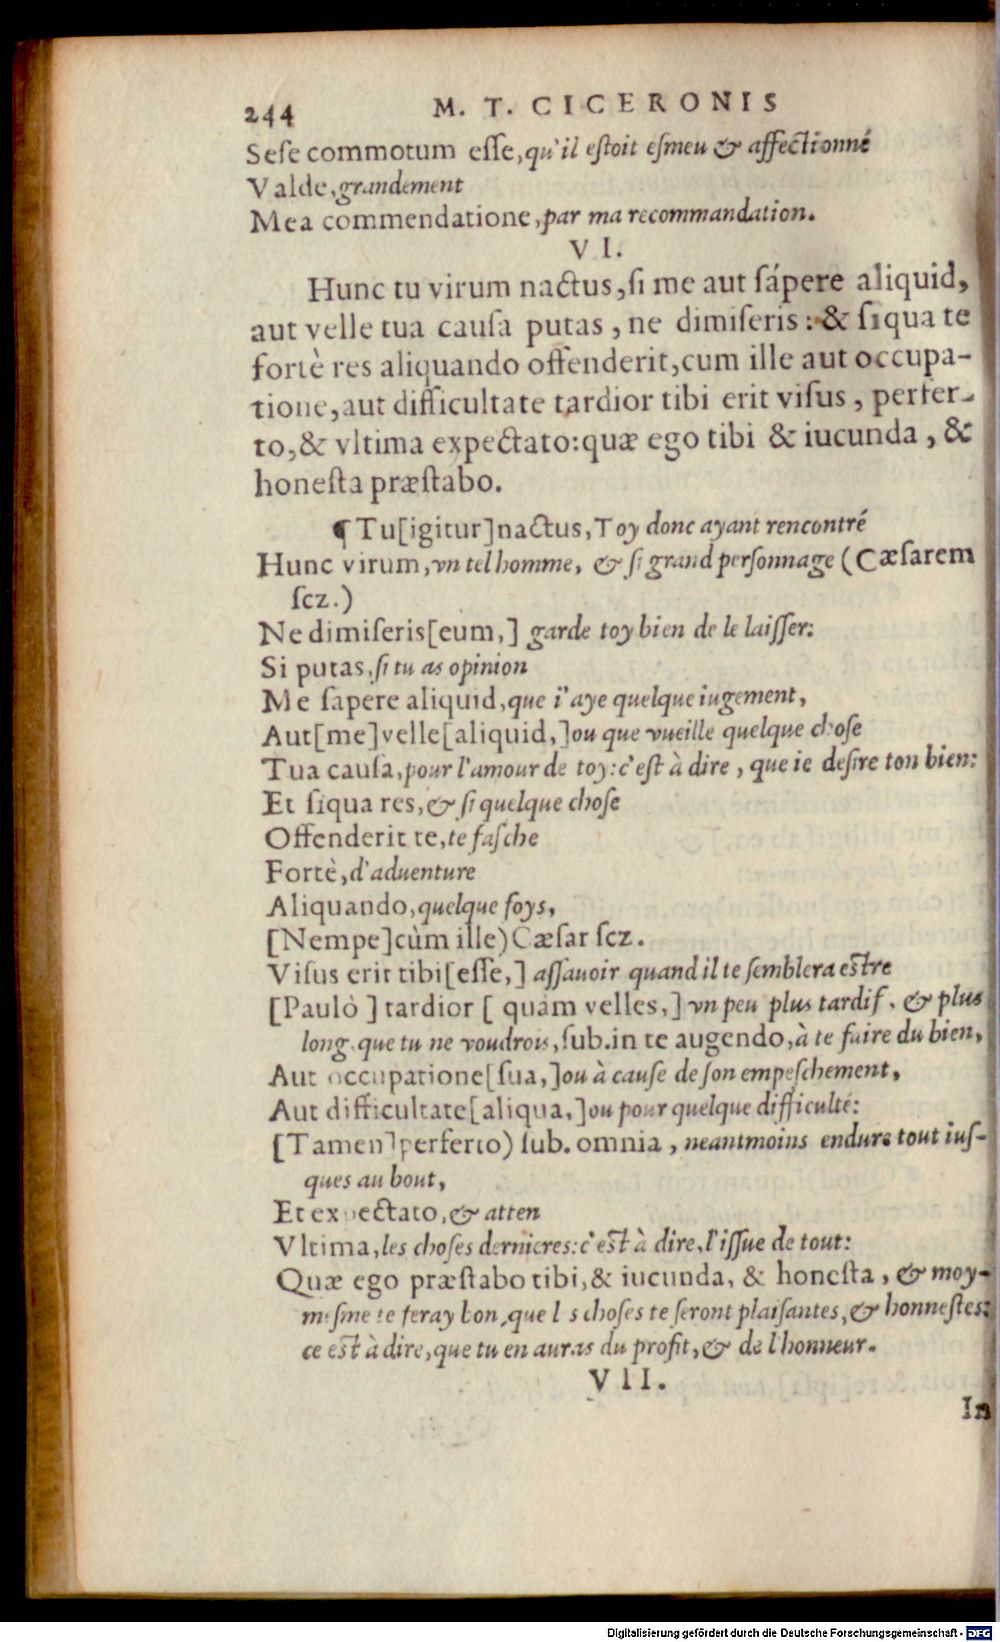 244 M. T. CICERONIS
Seſe commotum eſſe, qu'il eſtoit eſmeu & affectionné
Valde, grandement
Mea commendatione, par ma recommandation.
VI.
Hunc tu virum nactus, ſi me aut ſápere aliquid,
aut velle tua cauſa putas, ne dimiſeris: & ſiqua te
fortè res aliquando offenderit, cum ille aut occupa-
tione, aut difficultate tardior tibi erit viſus, perfer-
to, & vltima expectato: quæ ego tibi & iucunda, &
honeſta præſtabo.
¶ Tu[igitur]nactus, Toy donc ayant rencontré
Hunc virum, vn tel homme, & ſi grand perſonnage (Cæſarem
ſcz.)
Ne dimiſeris[eum,] garde toy bien de le laiſſer:
Si putas, ſi tu as opinion
Me ſapere aliquid, que i'aye quelque iugement,
Aut[me]velle[aliquid,]ou que vueille quelque choſe
Tua cauſa, pour l'amour de toy: c'eſt à dire, que ie deſire ton bien:
Et ſiqua res, & ſi quelque choſe
Offenderit te, te faſche
Fortè, d'aduenture
Aliquando, quelque foys,
[Nempe]cùm ille) Cæſar ſcz.
Viſus erit tibi[eſſe,] aſſauoir quand il te ſemblera eſtre
[Paulò] tardior [quàm velles,] vn peu plus tardif, & plus
long, que tu ne voudrois, ſub. in te augendo, à te faire du bien,
Aut occupatione[ſua,]ou à cauſe de ſon empeſchement,
Aut difficultate[aliqua,]ou pour quelque difficulté:
[Tamen]perferto) ſub. omnia, neantmoins endure tout iuſ-
ques au bout,
Et expectato, & atten
Vltima, les choſes dernieres: c'eſt à dire, l'iſſue de tout:
Quæ ego præſtabo tibi, & iucunda, & honeſta, & moy-
meſme te feray bon, que les choſes te ſeront plaiſantes, & honneſtes:
ce eſt à dire, que tu en auras du profit, & de l'honneur.
VII.
In
Digitalisierung gefördert durch die Deutsche Forschungsgemeinschaft - DFG